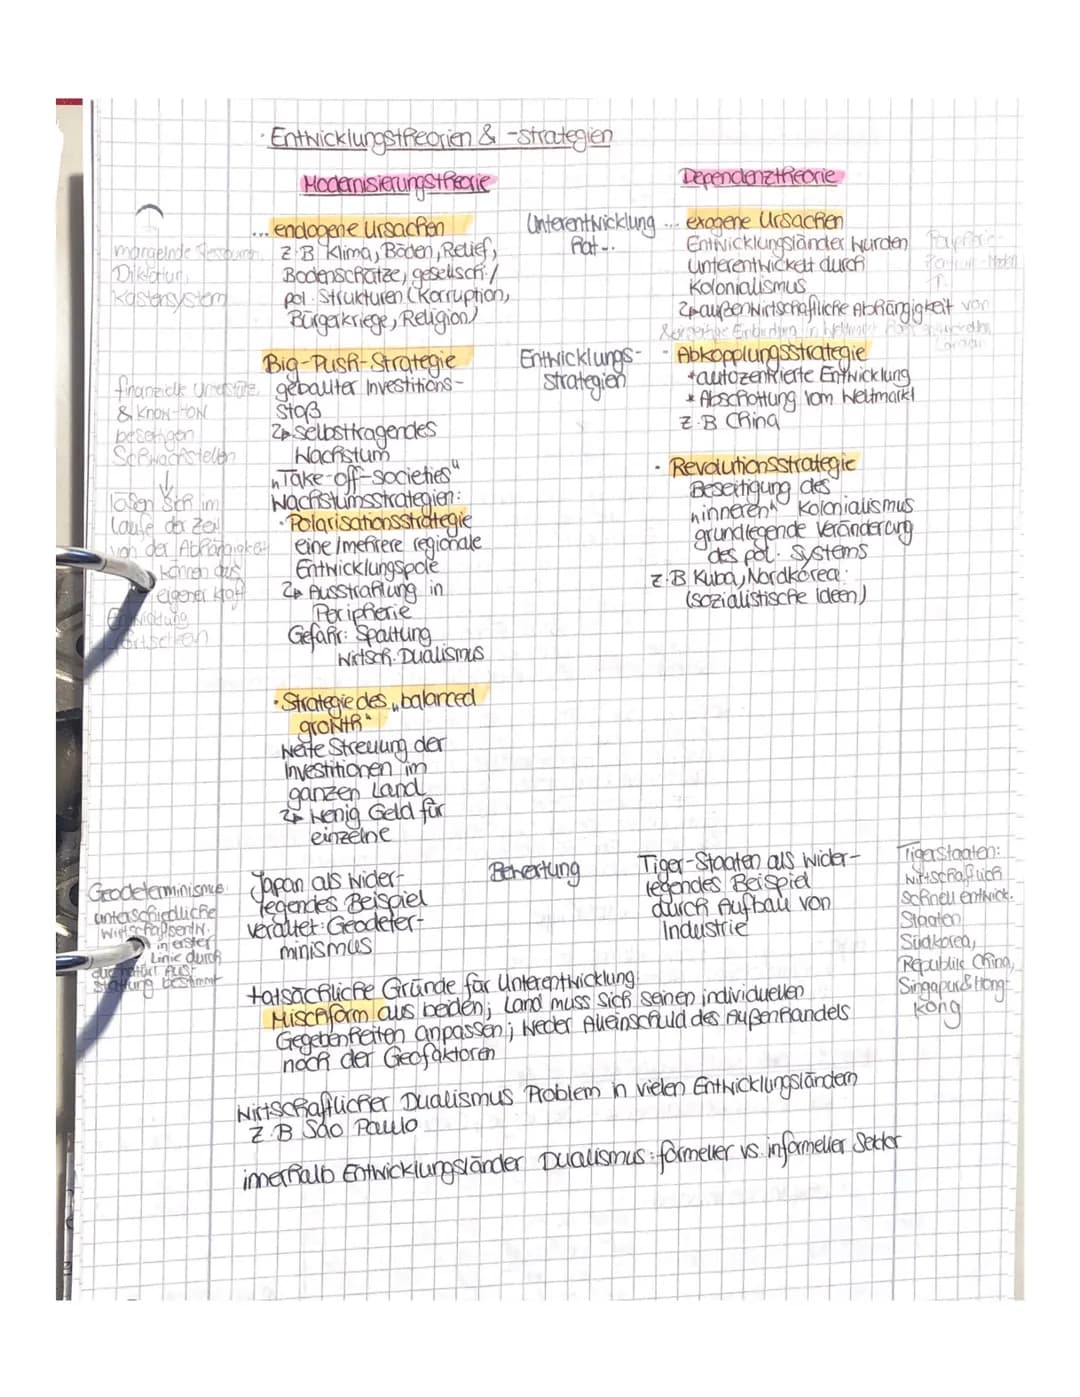 · Entwicklungstheorien & -strategien
Modernisierungstheorie
Dependenztheorie
Unterentwicklung
hat...
... endogene Ursachen
z.B Klima, Böden, Relief,
Bodenschätze, gesellsch./
pol. Strukturen (Korruption,
Bürgerkriege, Religion)
mangelnde Ressourcen,
Diktatur,
Kastensystem
... exogene Ursachen
Entwicklungsländer wurden
unterentwickelt durch
Kolonialismus
↳ außenwirtschaftliche Abhängigkeit von
Entwicklungs-
strategien
Big-Push-Strategie
geballter Investitions-
stoß
↳ selbsttragendes
Wachstum
„Take-off-societies"
Wachstumsstrategien:
· Polarisationsstrategie
eine/mehrere regionale
Entwicklungspole
↳ Ausstrahlung in
Peripherie
Gefahr: Spaltung
wirtsch. Dualismus
finanzielle
& Know-How
beseitigen
Schwachstellen
↓
lösen sich im
Laufe der Zeit
von der Abhängigkeit
können aus
eigener Kraft
Entwicklung
fortsetzen
· Strategie des „balanced
growth"
weite Streuung der
Investitionen im
ganzen Land
↳ wenig Geld für
einzelne
· Abkopplungsstrategie
* autozentrierte Entwicklung
* Abschottung vom Weltmarkt
z.B China
· Revolutionsstrategie
Beseitigung des
„inneren" Kolonialismus
grundlegende Veränderung
des pol. Systems
z.B Kuba, Nordkorea
(sozialistische Ideen)
Bewertung
Japan als wider-
legendes Beispiel
veraltet: Geodeter-
minismus
Geodeterminismus:
unterschiedliche
Wirtschaftsentw.
in erster
Linie durch
die natürl. Aus-
stattung bestimmt
Tiger-Staaten als wider-
legendes Beispiel
durch Aufbau von
Industrie
Tigerstaaten:
wirtschaftlich
schnell entwick.
Staaten
Südkorea,
Republik China,
Singapur & Hong-
kong
tatsächliche Gründe für Unterentwicklung:
Mischform aus beiden; Land muss sich seinen individuellen
Gegebenheiten anpassen; weder Alleinschuld des Außenhandels
noch der Geofaktoren
Wirtschaftlicher Dualismus Problem in vielen Entwicklungsländern
z.B São Paulo
innerhalb Entwicklungsländer Dualismus: formeller vs. informeller Sektor